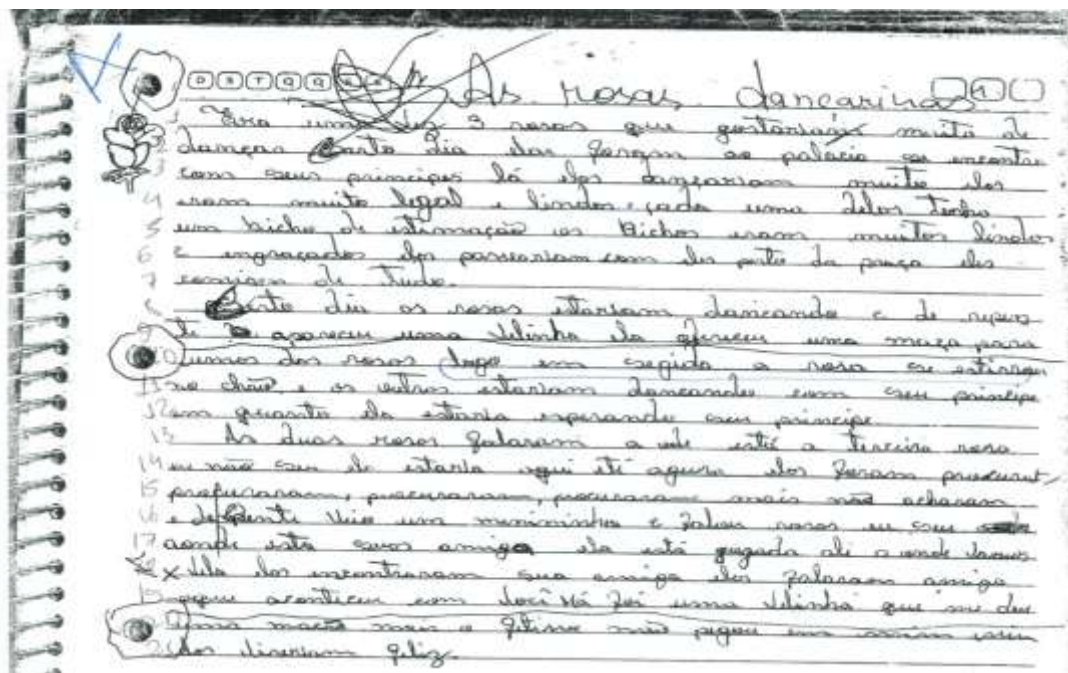 D S T Q Q
As rosas dançarinas
Era uma vez 3 rosas que gostariam muito de
danças certo dia elas forgam ao palácio se encontra
com seus principes lá elas dançariam muito elas
4 eram muito legal e lindas, cada uma delas tinha
5 um bicho de estimação os bichos eram muitos lindos
6 e engraçados elas passeariam com eles perto da praça eles
7 comiam de tudo.
8 certo dia as rosas estariam dançando e de repen
9 te apareceu uma velinha ela ofereceu uma maça para
10 umas das rosas logo em segida a rosa se estirou
11 no chão e as outras estariam dançando com seu principe
12 em quanto ela estaria esperando seu principe
13 As duas rosas falaram a ode está a terceira rosa
14 eu não sei ela estaria aqui até agora elas foram procurar
15 procuraram, procuraram, procuraram mais não acharam
16 e derepente veio um menininho e falou rosas eu sei
17 aonde esta suas amiga ela está jogada ali a onde
x dela elas encontraram sua amiga elas falaram amiga
19 oque aconteceu com você há foi uma velinha que me deu
uma maça mais o não pegou em mim
elas viveriam feliz.